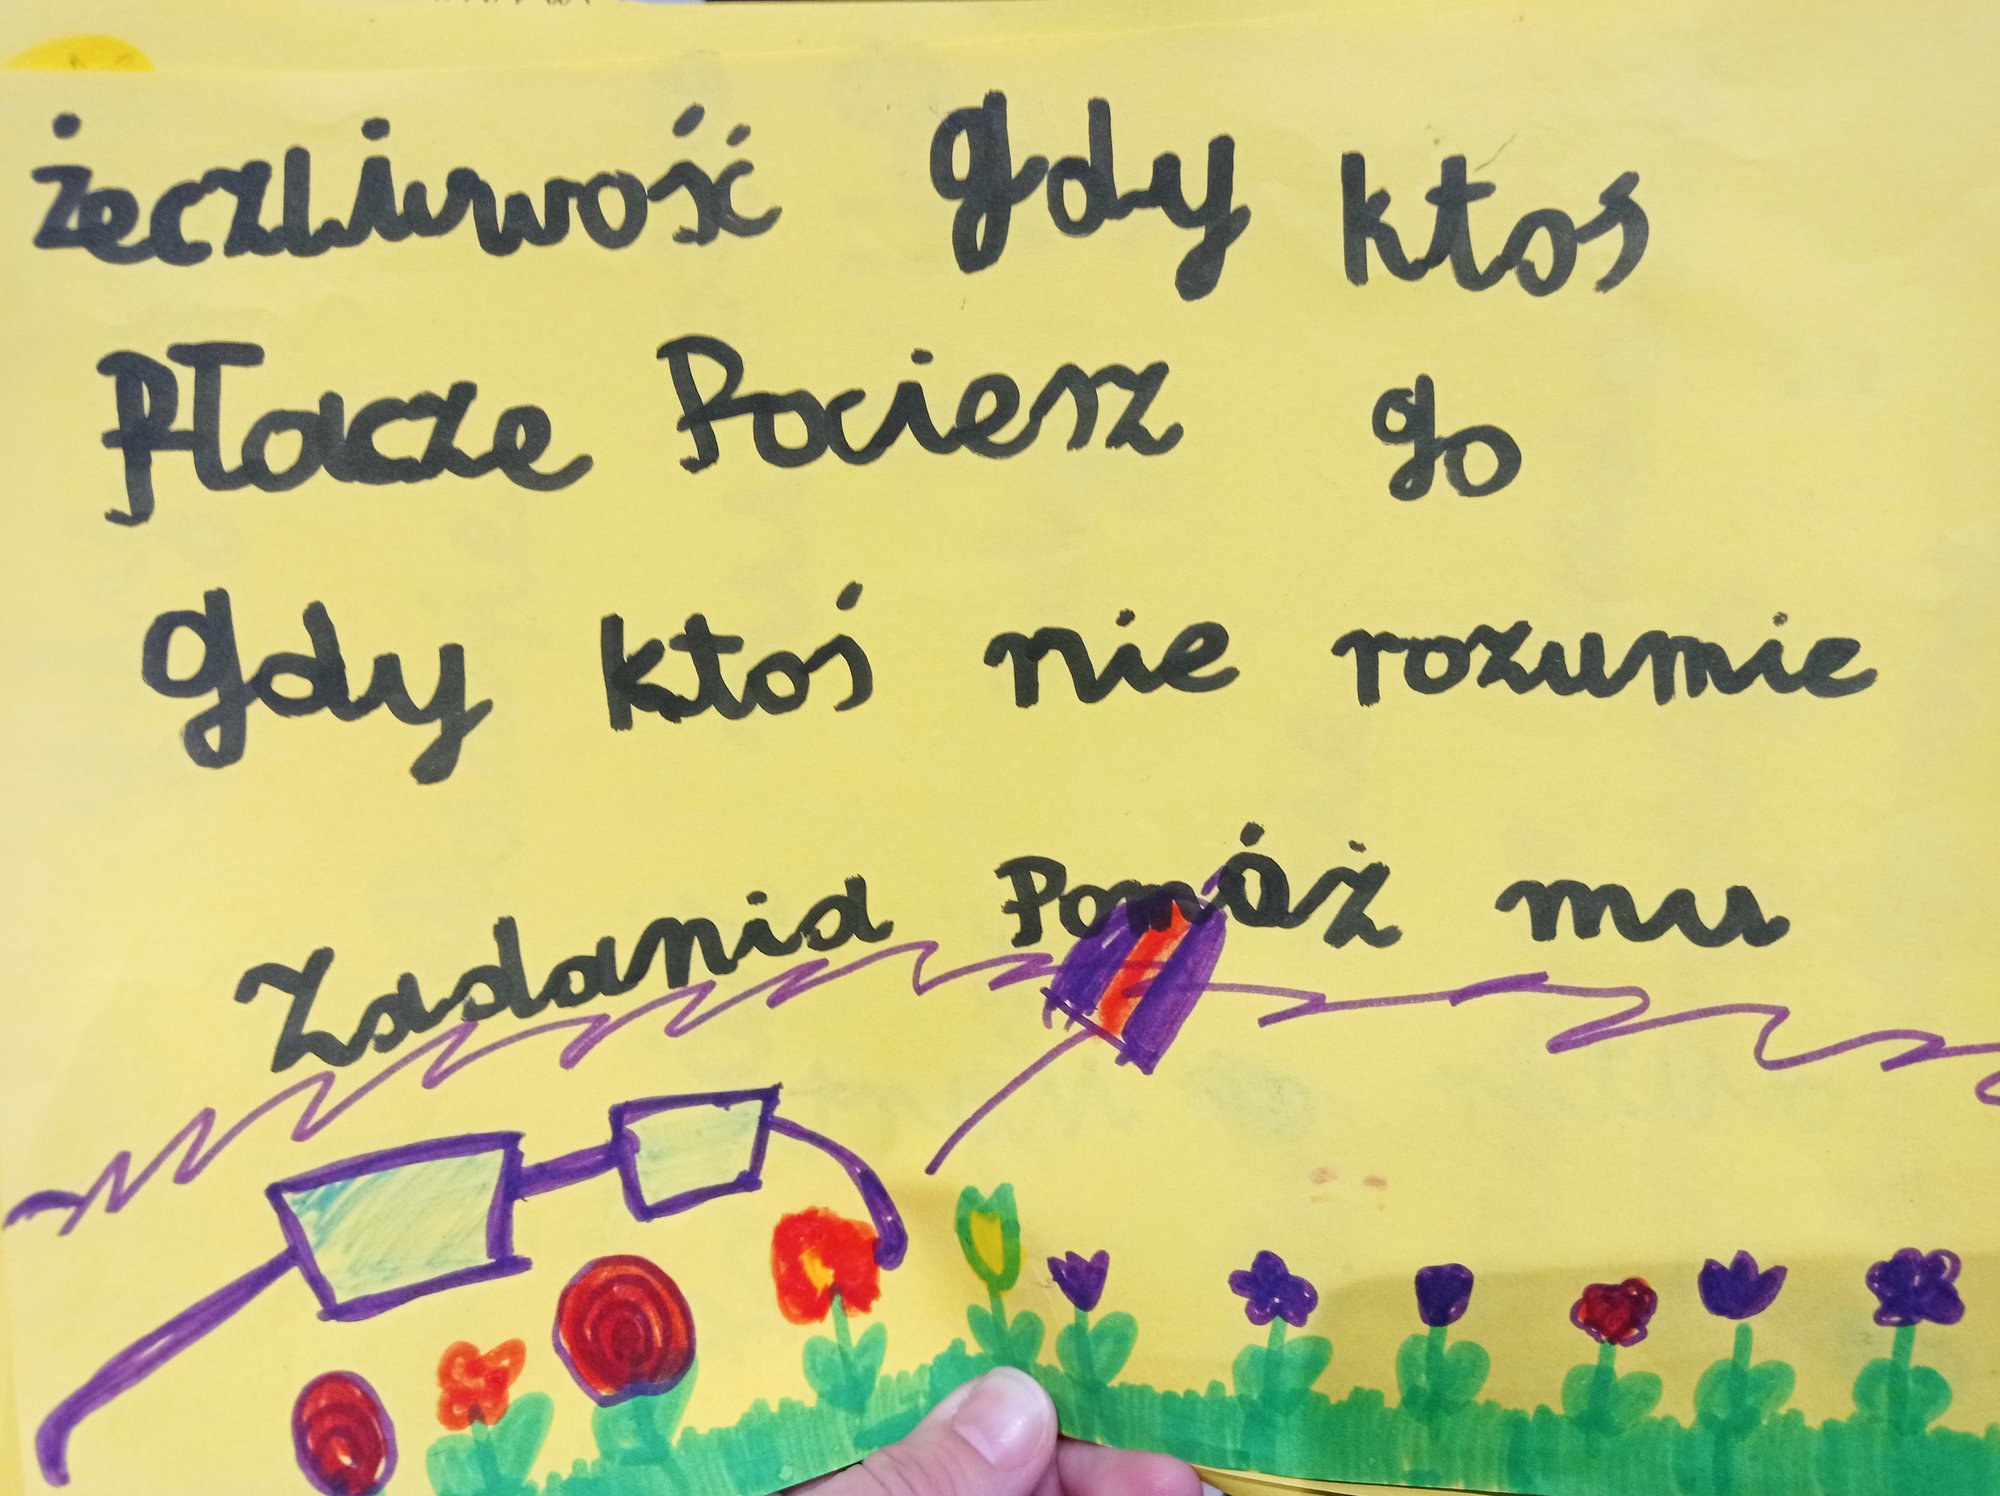 żeczliwość gdy ktos
Płacze Pociesz go
gdy ktoś nie rozumie
Zadania Pomóż mu